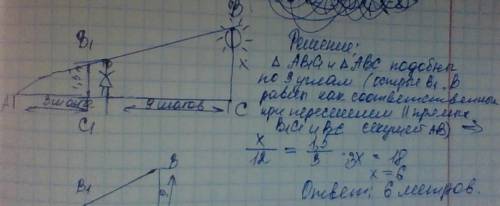 B₁
B
1,5
x
A
3 шага
9 шагов
C₁
C
Решение:
△ AB₁C₁ и △ABC подобны
по 3 углам (острые B₁, B
равны как соответственные
при пересечении || прямых
B₁C₁ и BC секущей AB) ⇒
x/12 = 1,5/3 3x = 18
x = 6
Ответ: 6 метров.
B₁
B